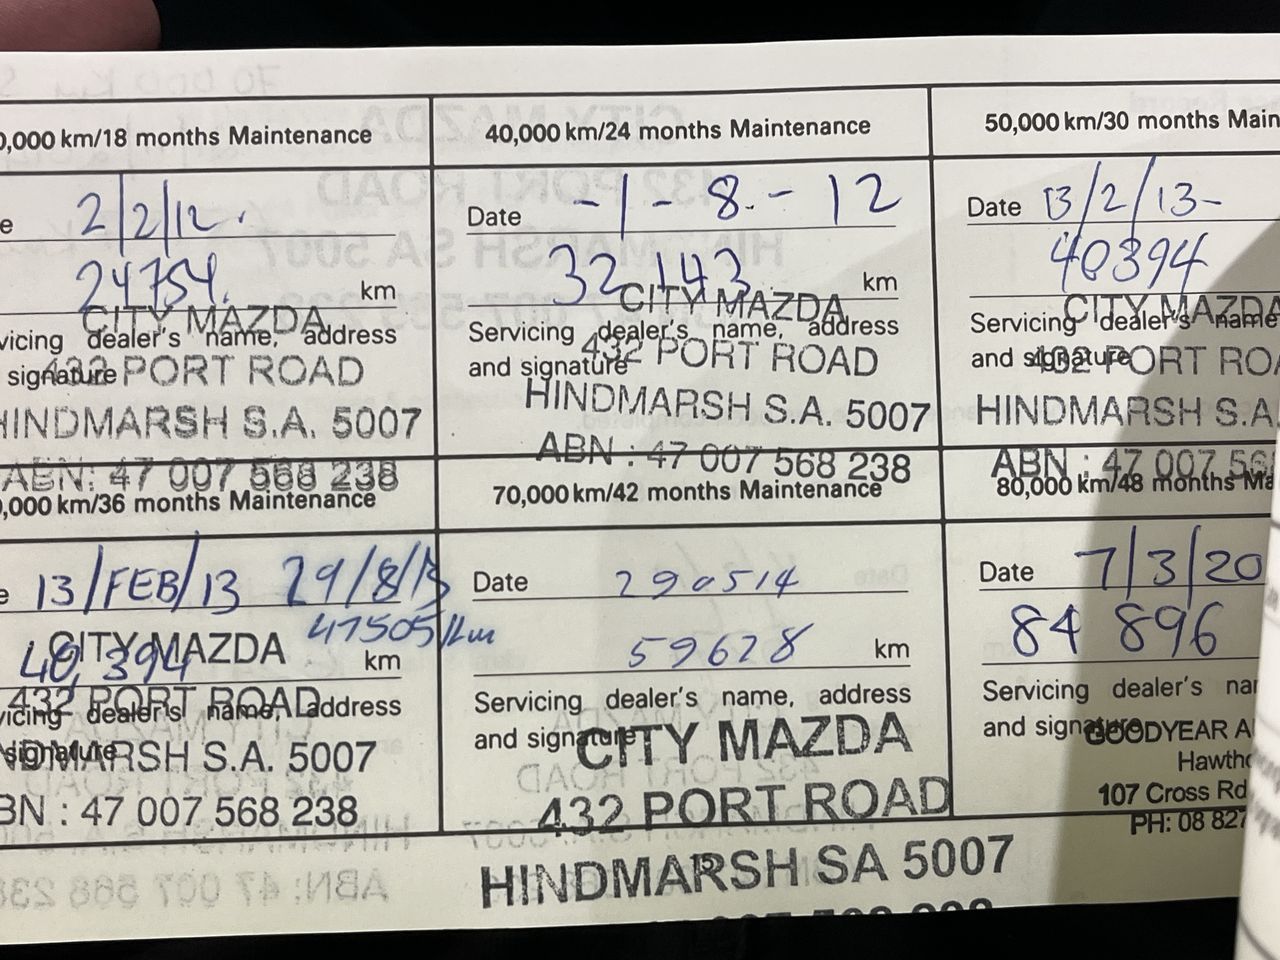 0,000 km/18 months Maintenance
e 2/2/12.
24754. km
CITY MAZDA
vicing dealer's name, address
signature
432 PORT ROAD
HINDMARSH S.A. 5007
ABN: 47 007 568 238
40,000 km/24 months Maintenance
Date - 1 - 8. - 12
32 143 km
CITY MAZDA
Servicing dealer's name, address
and signature
432 PORT ROAD
HINDMARSH S.A. 5007
ABN : 47 007 568 238
50,000 km/30 months Main
Date 13/2/13-
40394
CITY MAZDA
Servicing dealer's name
and signature
432 PORT ROA
HINDMARSH S.A.
ABN : 47 007 56
,000 km/36 months Maintenance
e 13/FEB/13 29/8/13
47505 km
40,394 km
CITY MAZDA
432 PORT ROAD
vicing dealer's name, address
signature
NDMARSH S.A. 5007
BN : 47 007 568 238
70,000 km/42 months Maintenance
Date 290514
59628 km
Servicing dealer's name, address
and signature
CITY MAZDA
432 PORT ROAD
HINDMARSH SA 5007
80,000 km/48 months Ma
Date 7/3/20
84 896
Servicing dealer's nar
and signature
GOODYEAR A
Hawtho
107 Cross Rd
PH: 08 827